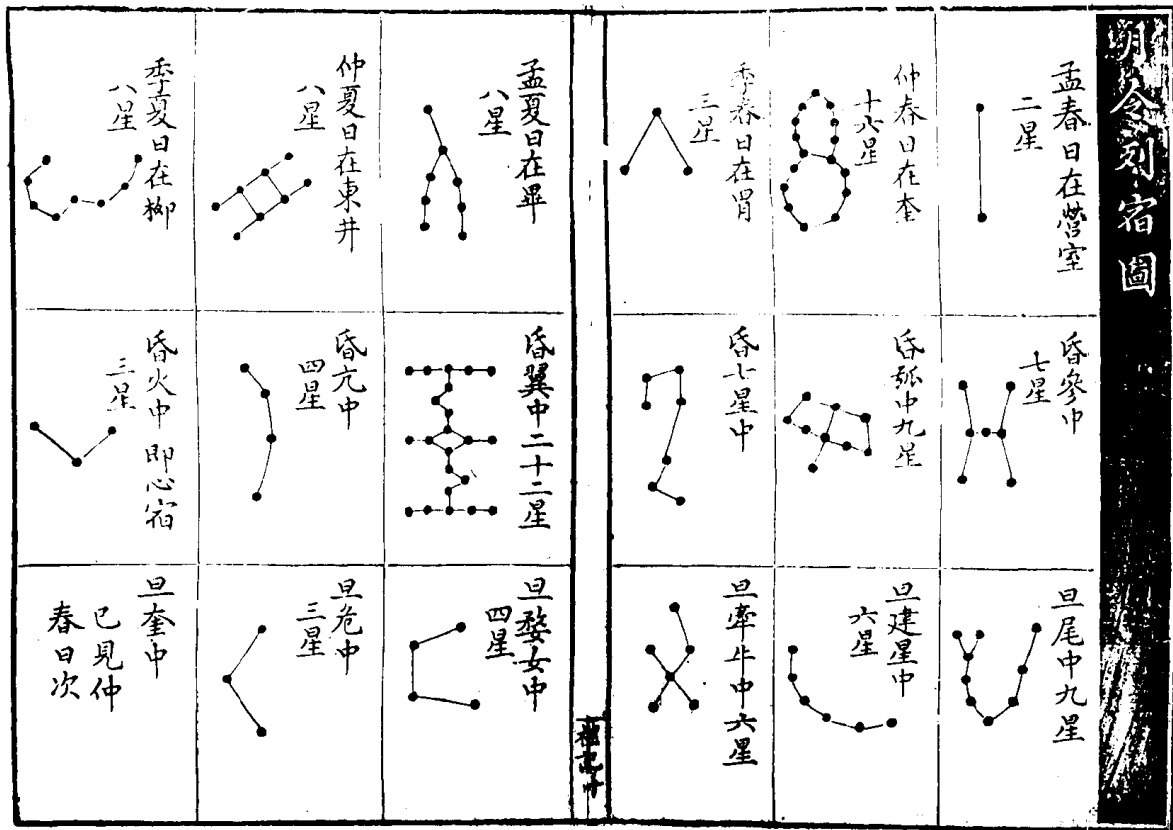 月令列宿圖
孟春日在營室
二星
昏參中
七星
旦尾中九星
仲春日在奎
十六星
昏弧中九星
旦建星中
六星
季春日在胃
三星
昏七星中
旦牽牛中六星
禮記十
孟夏日在畢
八星
昏翼中二十二星
旦婺女中
四星
仲夏日在東井
八星
昏亢中
四星
旦危中
三星
季夏日在柳
八星
昏火中即心宿
三星
旦奎中
已見仲
春日次